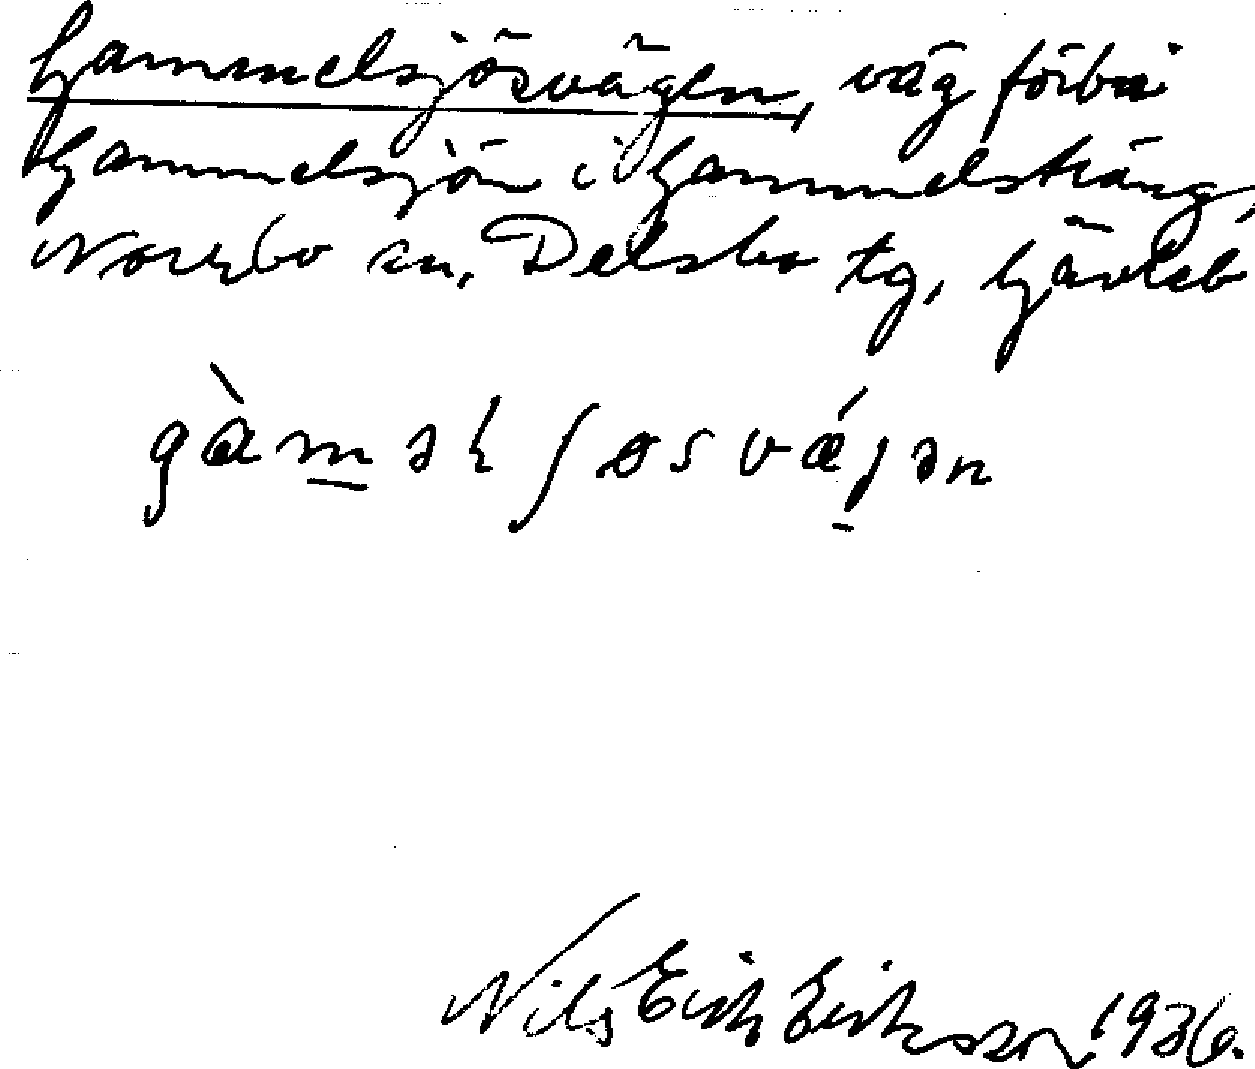 Gammelsjösvägen, väg förbi
Gammelsjön i Gammelsträng,
Norrbo sn, Delsbo tg, Gävleb
gàməlʃøsvǽjən
Nils Erik Eriksson 1936.